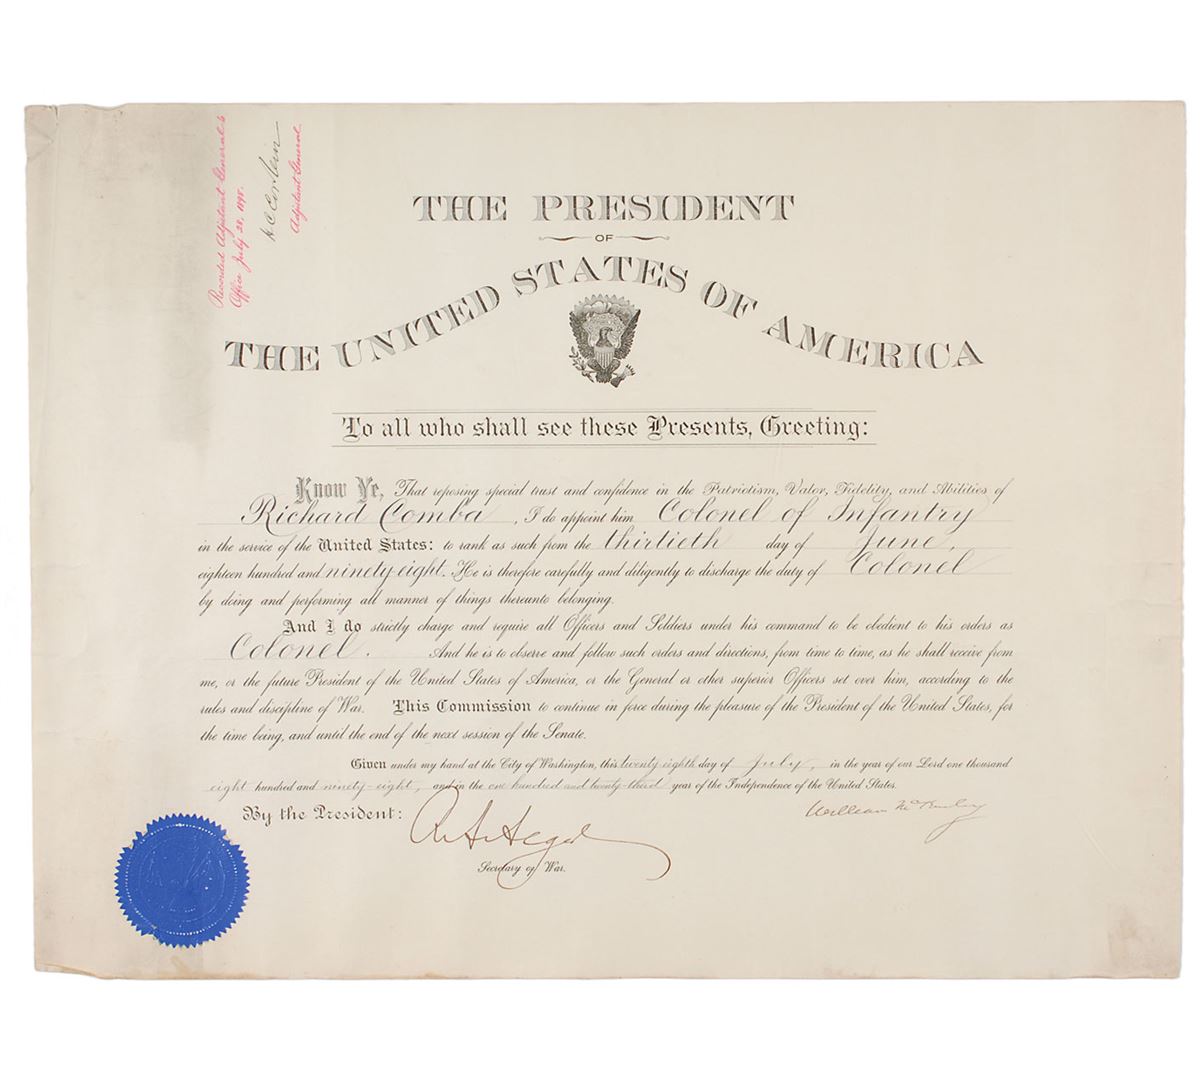 Recorded Adjutant General's
Office July 28, 1898.
H C Corbin
Adjutant General.
THE PRESIDENT
OF
THE UNITED STATES OF AMERICA
To all who shall see these Presents, Greeting:
Know Ye, That reposing special trust and confidence in the Patriotism, Valor, Fidelity, and Abilities of
Richard Comba, I do appoint him Colonel of Infantry
in the service of the United States: to rank as such from the thirtieth day of June,
eighteen hundred and ninety eight. He is therefore carefully and diligently to discharge the duty of Colonel
by doing and performing all manner of things thereunto belonging.
And I do strictly charge and require all Officers and Soldiers under his command to be obedient to his orders as
Colonel. And he is to observe and follow such orders and directions, from time to time, as he shall receive from
me, or the future President of the United States of America, or the General or other superior Officers set over him, according to the
rules and discipline of War. This Commission to continue in force during the pleasure of the President of the United States, for
the time being, and until the end of the next session of the Senate.
Given under my hand at the City of Washington, this twenty eighth day of July, in the year of our Lord one thousand
eight hundred and ninety-eight, and in the one hundred and twenty-third year of the Independence of the United States.
By the President:
William McKinley
R A Alger
Secretary of War.